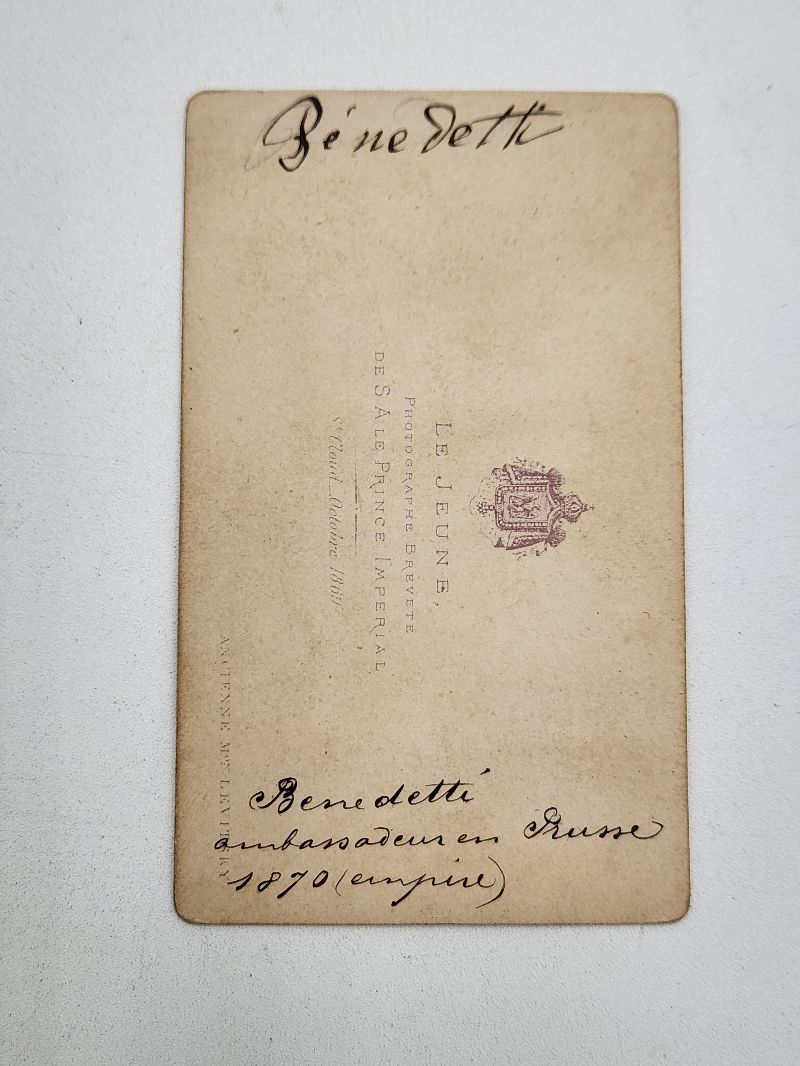 Bénedetti
LE JEUNE,
PHOTOGRAPHE BREVETÉ
DE S A LE PRINCE IMPERIAL
St Cloud Octobre
ANCIENNE Mon LEVITSKY
Benedetti
ambassadeur en Prusse
1870 (empire)